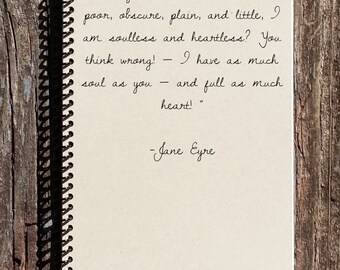 poor, obscure, plain, and little, I
am soulless and heartless? You
think wrong! – I have as much
soul as you – and full as much
heart! "
-Jane Eyre